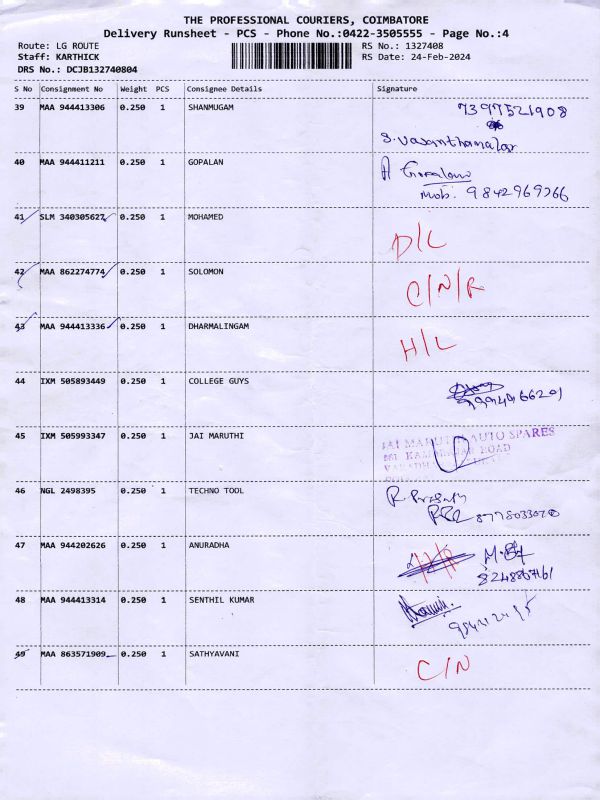 THE PROFESSIONAL COURIERS, COIMBATORE
Delivery Runsheet - PCS - Phone No.:0422-3505555 - Page No.:4
Route: LG ROUTE RS No.: 1327408
Staff: KARTHICK RS Date: 24-Feb-2024
DRS No.: DCJB132740804
S No Consignment No Weight PCS Consignee Details Signature
39 MAA 944413306 0.250 1 SHANMUGAM 7397521908
S. Vasanthamalar
40 MAA 944411211 0.250 1 GOPALAN
Mob. 9842969366
41 SLM 340305627 0.250 1 MOHAMED D/L
42 MAA 862274774 0.250 1 SOLOMON C/N/R
43 MAA 944413336 0.250 1 DHARMALINGAM H/L
44 IXM 505893449 0.250 1 COLLEGE GUYS
45 IXM 505993347 0.250 1 JAI MARUTHI JAI MARUTHI AUTO SPARES
ROAD
46 NGL 2498395 0.250 1 TECHNO TOOL
47 MAA 944202626 0.250 1 ANURADHA
48 MAA 944413314 0.250 1 SENTHIL KUMAR
49 MAA 863571909 0.250 1 SATHYAVANI C/N